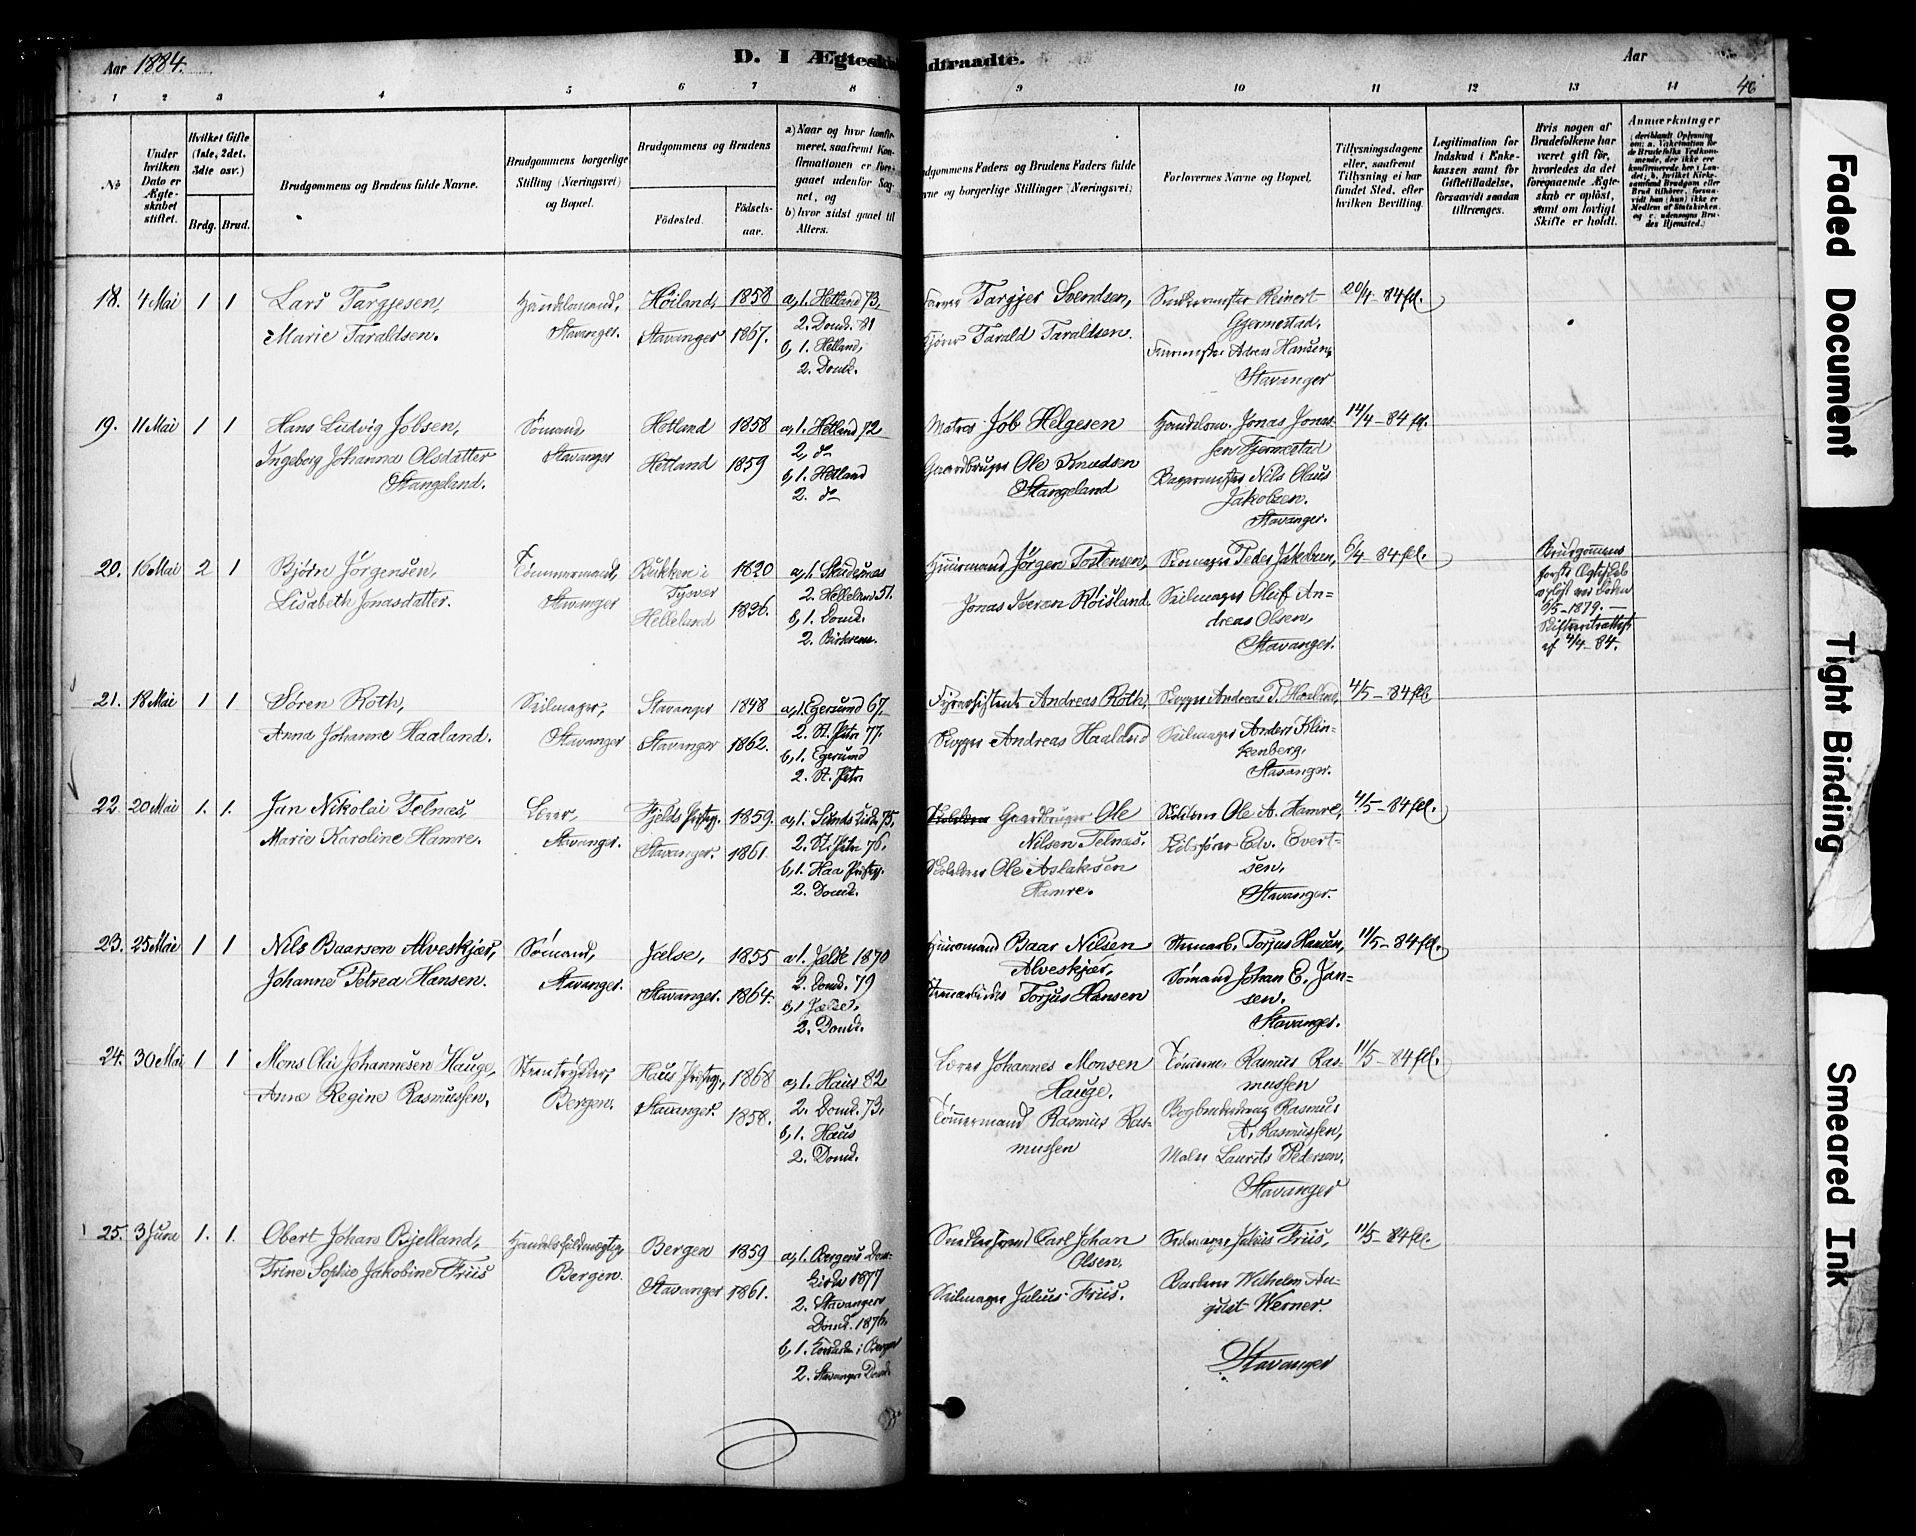 Aar 1884.
D. I Ægtesk
dtraadte.
Aar
46
1 2 3 4 5 6 7 8 9 10 11 12 13 14
No
Under hvilken Dato er Ægteskabet stiftet.
Hvilket Gifte (1ste, 2det, 3die osv.)
Brdg. Brud.
Brudgommens og Brudens fulde Navne.
Brudgommens borgerlige Stilling (Næringsvei) og Bopæl.
Brudgommens og Brudens
Fødested.
Fødselsaar.
a) Naar og hvor konfirmeret, saafremt Konfirmationen er foregaaet udenfor Sognet, og
b) hvor sidst gaaet til Alters.
dgommens Faders og Brudens Faders fulde
vne og borgerlige Stillinger (Næringsvei)
Forlovernes Navne og Bopæl.
Tillysningsdagene eller, saafremt Tillysning ei har fundet Sted, efter hvilken Bevilling.
Legitimation for Indskud i Enkekassen samt for Giftetilladelse, forsaavidt saadan tiltrænges.
Hvis nogen af Brudefolkene har været gift før, hvorledes da det foregaaende Ægteskab er opløst, samt om lovligt Skifte er holdt.
Anmærkninger
18. 4 Mai 1 1
Lars Targjesen,
Marie Taraldsen.
Handelsmand,
Stavanger.
Høiland,
Stavanger
1858
1867.
a, 1. Hetland 73,
2. Domk. 81
b, 1. Hetland,
2. Domk.
Targjer Svendsen,
Tarald Taraldsen.
Snedkermester Reinert
Gjermestad.
Hansen,
Stavanger
20/4-84 fl.
19. 11 Mai 1 1
Hans Ludvig Jobsen,
Ingeborg Johanna Olsdatter
Stangeland.
Sømand
Stavanger
Hetland
Hetland
1858
1859
a, 1. Hetland 72
2. do
b, 1. Hetland
2. do
Matros Job Helgesen
Gaardbruger Ole Knudsen
Stangeland
Handelsm. Jonas Jonassen Fjermestad
Bagermester Nils Olaus
Jakobsen.
Stavanger.
14/4-84 fl.
20. 16 Mai 2 1
Bjørn Jörgensen,
Lisabeth Jonasdatter.
Tømmermand,
Stavanger
Bukken i
Tysvær
Helleland
1820
1836.
a, 1. Skudesnes
2. Helleland 51.
b, 1. Domk.
2. Birkrem.
Huusmand Jörgen Tostensen,
Jonas Iversen Röisland
Skomager Peder Jakobsen,
Seilmager Oluf Andreas Olsen,
Stavanger.
6/4-84 fl.
Brudgommens
første Ægteskab
opløst ved Døden
6/5-1879. —
Skifteretsattest
af 4/4-84.
21. 18 Mai 1 1
Søren Roth,
Anna Johanne Haaland.
Seilmager,
Stavanger
Stavanger
Stavanger
1848
1862.
a, 1. Egersund 67.
2. St. Petri 77.
b, 1. Egersund
2. St. Petri
Fyrassistent Andreas Roth,
Skipper Andreas Haaland
Skipper Andreas T. Haaland,
Seilmager Anders Klinkenberg,
Stavanger.
4/5-84 fl.
22. 20 Mai 1. 1.
Jan Nikolai Telnæs,
Marie Karoline Hamre.
Lærer,
Stavanger.
Fjelds Præstg.
Stavanger.
1859.
1861.
a, 1. Sunds Kirke 75,
2. St. Petri 76.
b, 1. Haa Præstg.
2. Domk.
Gaardbruger Ole
Nilsen Telnæs.
Skolelærer Ole Aslaksen
Hamre.
Skolelærer Ole A. Hamre,
Edv. Evertsen.
Stavanger.
4/5-84 fl.
23. 25 Mai 1 1
Nils Baarsen Alveskjær,
Johanne Petrea Hansen.
Sømand,
Stavanger.
Jælse,
Stavanger.
1855
1864.
a, 1. Jælse 1870
2. Domk. 79
b, 1 Jælse.
2. Domk.
Huusmand Baar Nilsen
Alveskjær,
Torjus Hansen
Torjus Hansen,
Sømand Johan E. Jansen.
Stavanger.
11/5-84 fl.
24. 30 Mai 1 1
Mons Olai Johannesen Hauge,
Anne Regine Rasmussen.
Bergen.
Haus Præstg.
Stavanger.
1868
1858.
a, 1. Haus 82
2. Domk. 73.
b, 1. Haus
2. Domk.
Lærer Johannes Monsen
Hauge.
Tömmermand Rasmus Rasmussen
Tömmerm. Rasmus Rasmussen
Rasmus
A. Rasmussen,
Maler Laurits Pedersen.
Stavanger
11/5-84 fl.
25. 3 Juni 1. 1.
Obert Johan Bjelland,
Trine Sophie Jakobine Friis
Handelsfuldmægtig,
Bergen.
Bergen
Stavanger
1859
1861.
a, 1. Bergens Domkirke 1877
2. Stavanger
Domk. 1876.
b, 1. Korskirken i Bergen
2. Stavanger Domk.
Carl Johan
Olsen.
Seilmager Julius Friis.
Seilmager Julius Friis,
Barberer Wilhelm August Werner.
Stavanger
11/5-84 fl.
Faded Document
Tight Binding
Smeared Ink